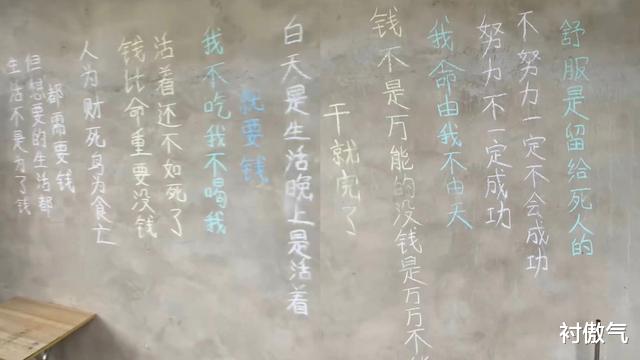 生活不是为了钱
但想要的生活都
都需要钱
人为财死鸟为食亡
钱比命重要没钱
活着还不如死了
我不吃我不喝我
就要钱
白天是生活晚上是活着
干就完了
钱不是万能的没钱是万万不能
我命由我不由天
努力不一定成功
不努力一定不会成功
舒服是留给死人的
衬傲气